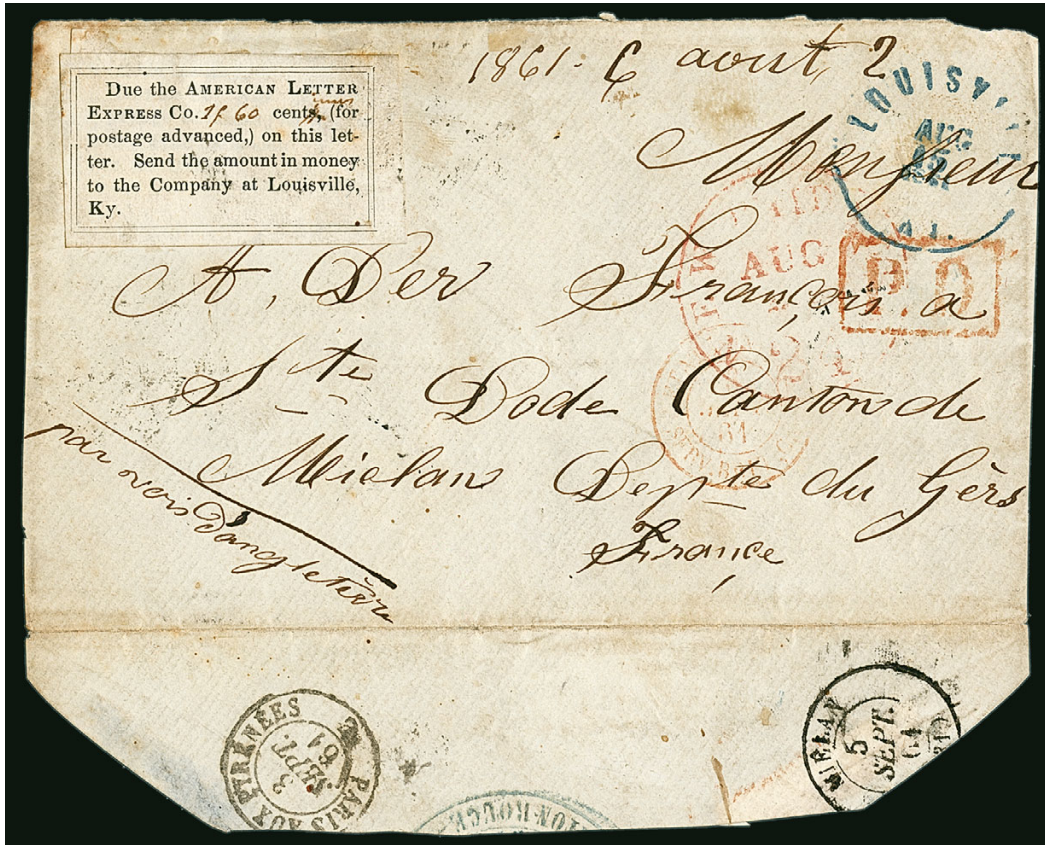 1861. 6 aout, 2
Due the AMERICAN LETTER
EXPRESS Co. 2f 60 cents, (for
postage advanced,) on this let-
ter. Send the amount in money
to the Company at Louisville,
Ky.
LOUISVILLE
AUG
Monsieur
AUG
P.D.
A. Der François a
Ste Dode Canton de
61
Mielan Depte du Gèrs
France
par vois D'angleterre
PARIS AUX PYRÉNÉES
3
SEPT.
61
MIELAN
5
SEPT.
61